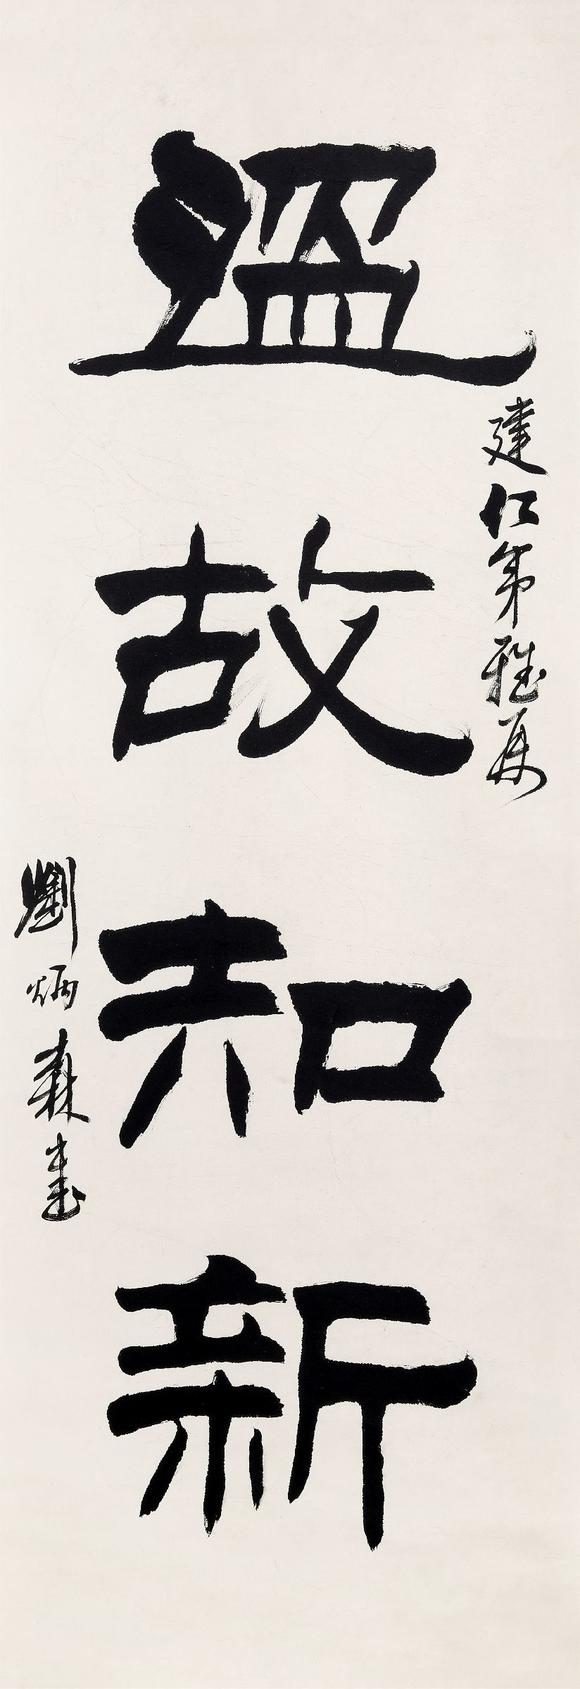 溫故知新
建仁弟雅屬
劉炳森書